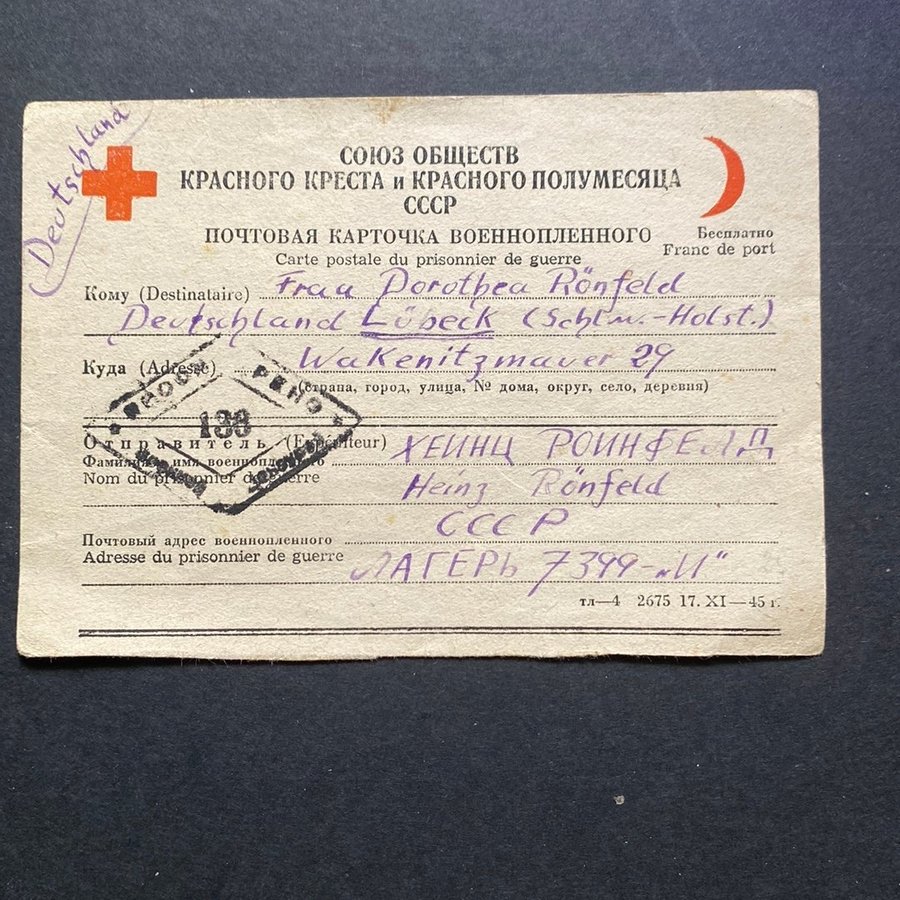 Deutschland
СОЮЗ ОБЩЕСТВ
КРАСНОГО КРЕСТА и КРАСНОГО ПОЛУМЕСЯЦА
СССР
ПОЧТОВАЯ КАРТОЧКА ВОЕННОПЛЕННОГО
Бесплатно
Carte postale du prisonnier de guerre
Franc de port
Кому (Destinataire) Frau Dorothea Rönfeld
Deutschland Lübeck (Schlw.-Holst.)
Куда (Adresse) Wakenitzmauer 29
(страна, город, улица, № дома, округ, село, деревня)
138
Отправитель (Expéditeur) ХЕИНЦ РОИНФЕЛД
Фамилия и имя военнопленного
Nom du prisonnier de guerre Heinz Rönfeld
СССР
Почтовый адрес военнопленного
Adresse du prisonnier de guerre ЛАГЕРЬ 7399-„И"
тл—4 2675 17. XI—45 г.